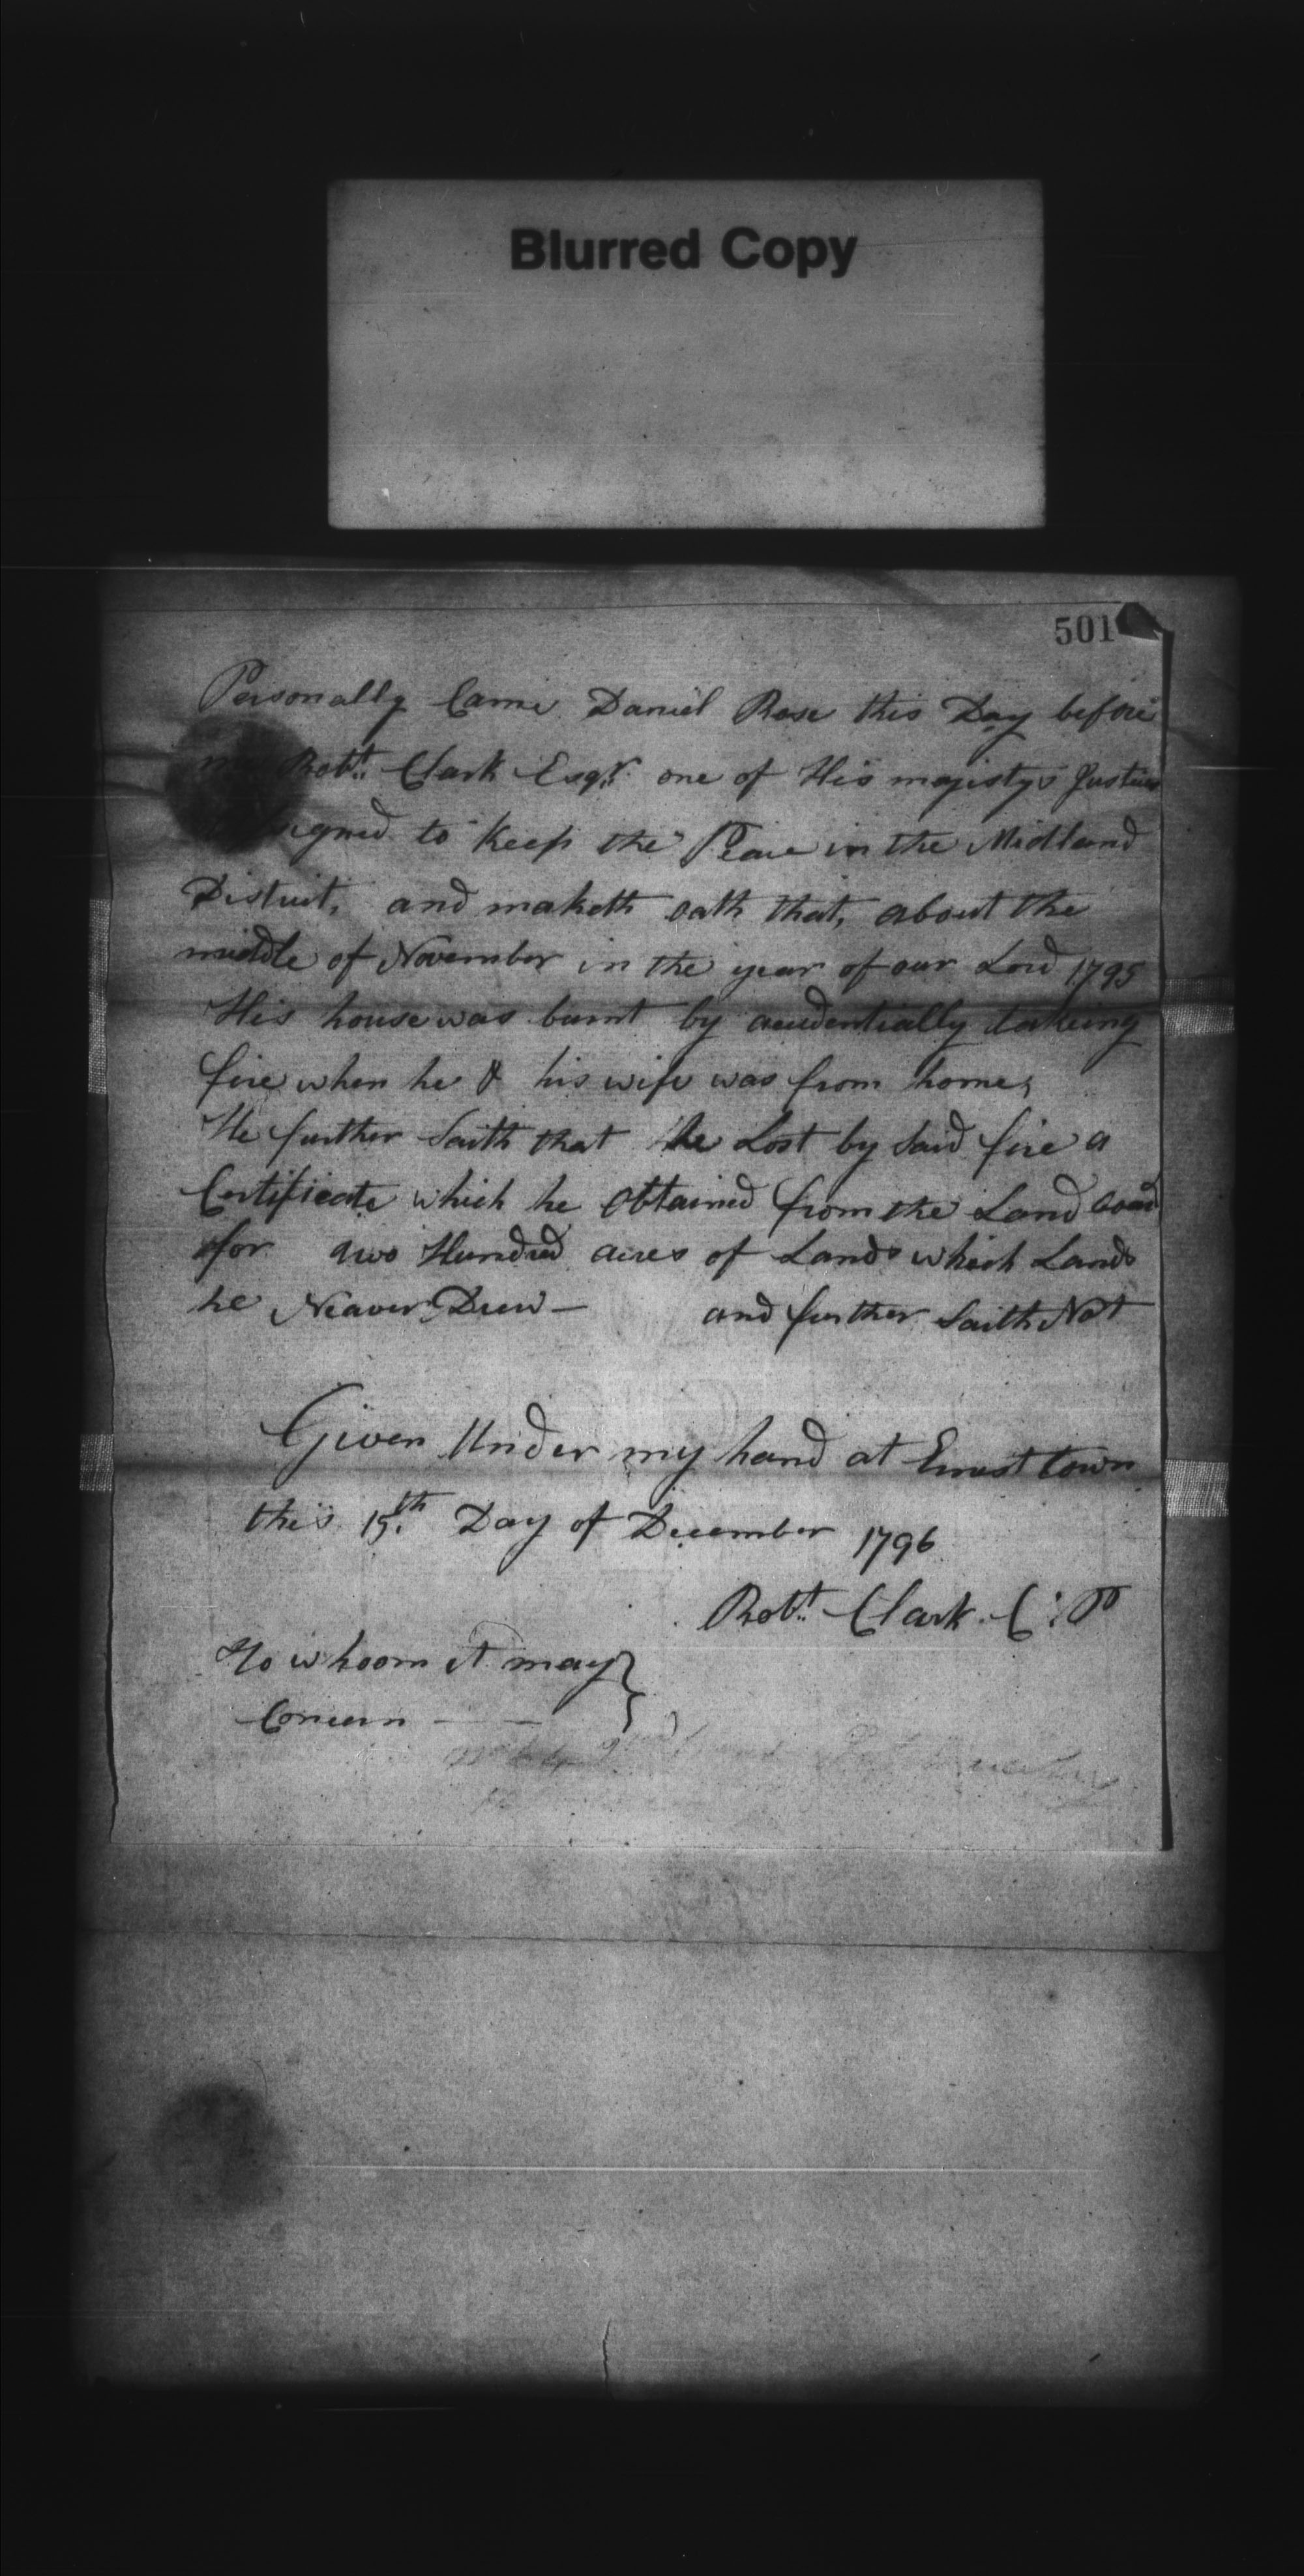 Blurred Copy
501
Personally Came Daniel Rose this Day before
me Robt. Clark Esqr. one of His majestys Justices
assigned to Keep the Peace in the Midland
District, and maketh oath that, about the
middle of November in the year of our Lord 1795
His house was burnt by acudentially takeing
fire when he & his wife was from home,
He further Saith that he Lost by Said fire a
Certificate which he obtained from the Land board
for two Hundred acres of Lands which Lands
he Neaver Drew — and further Saith Not
Given Under my hand at Ernest town
this 15th. Day of December 1796
Robt. Clark C:P
To whoom it may
Concern — —